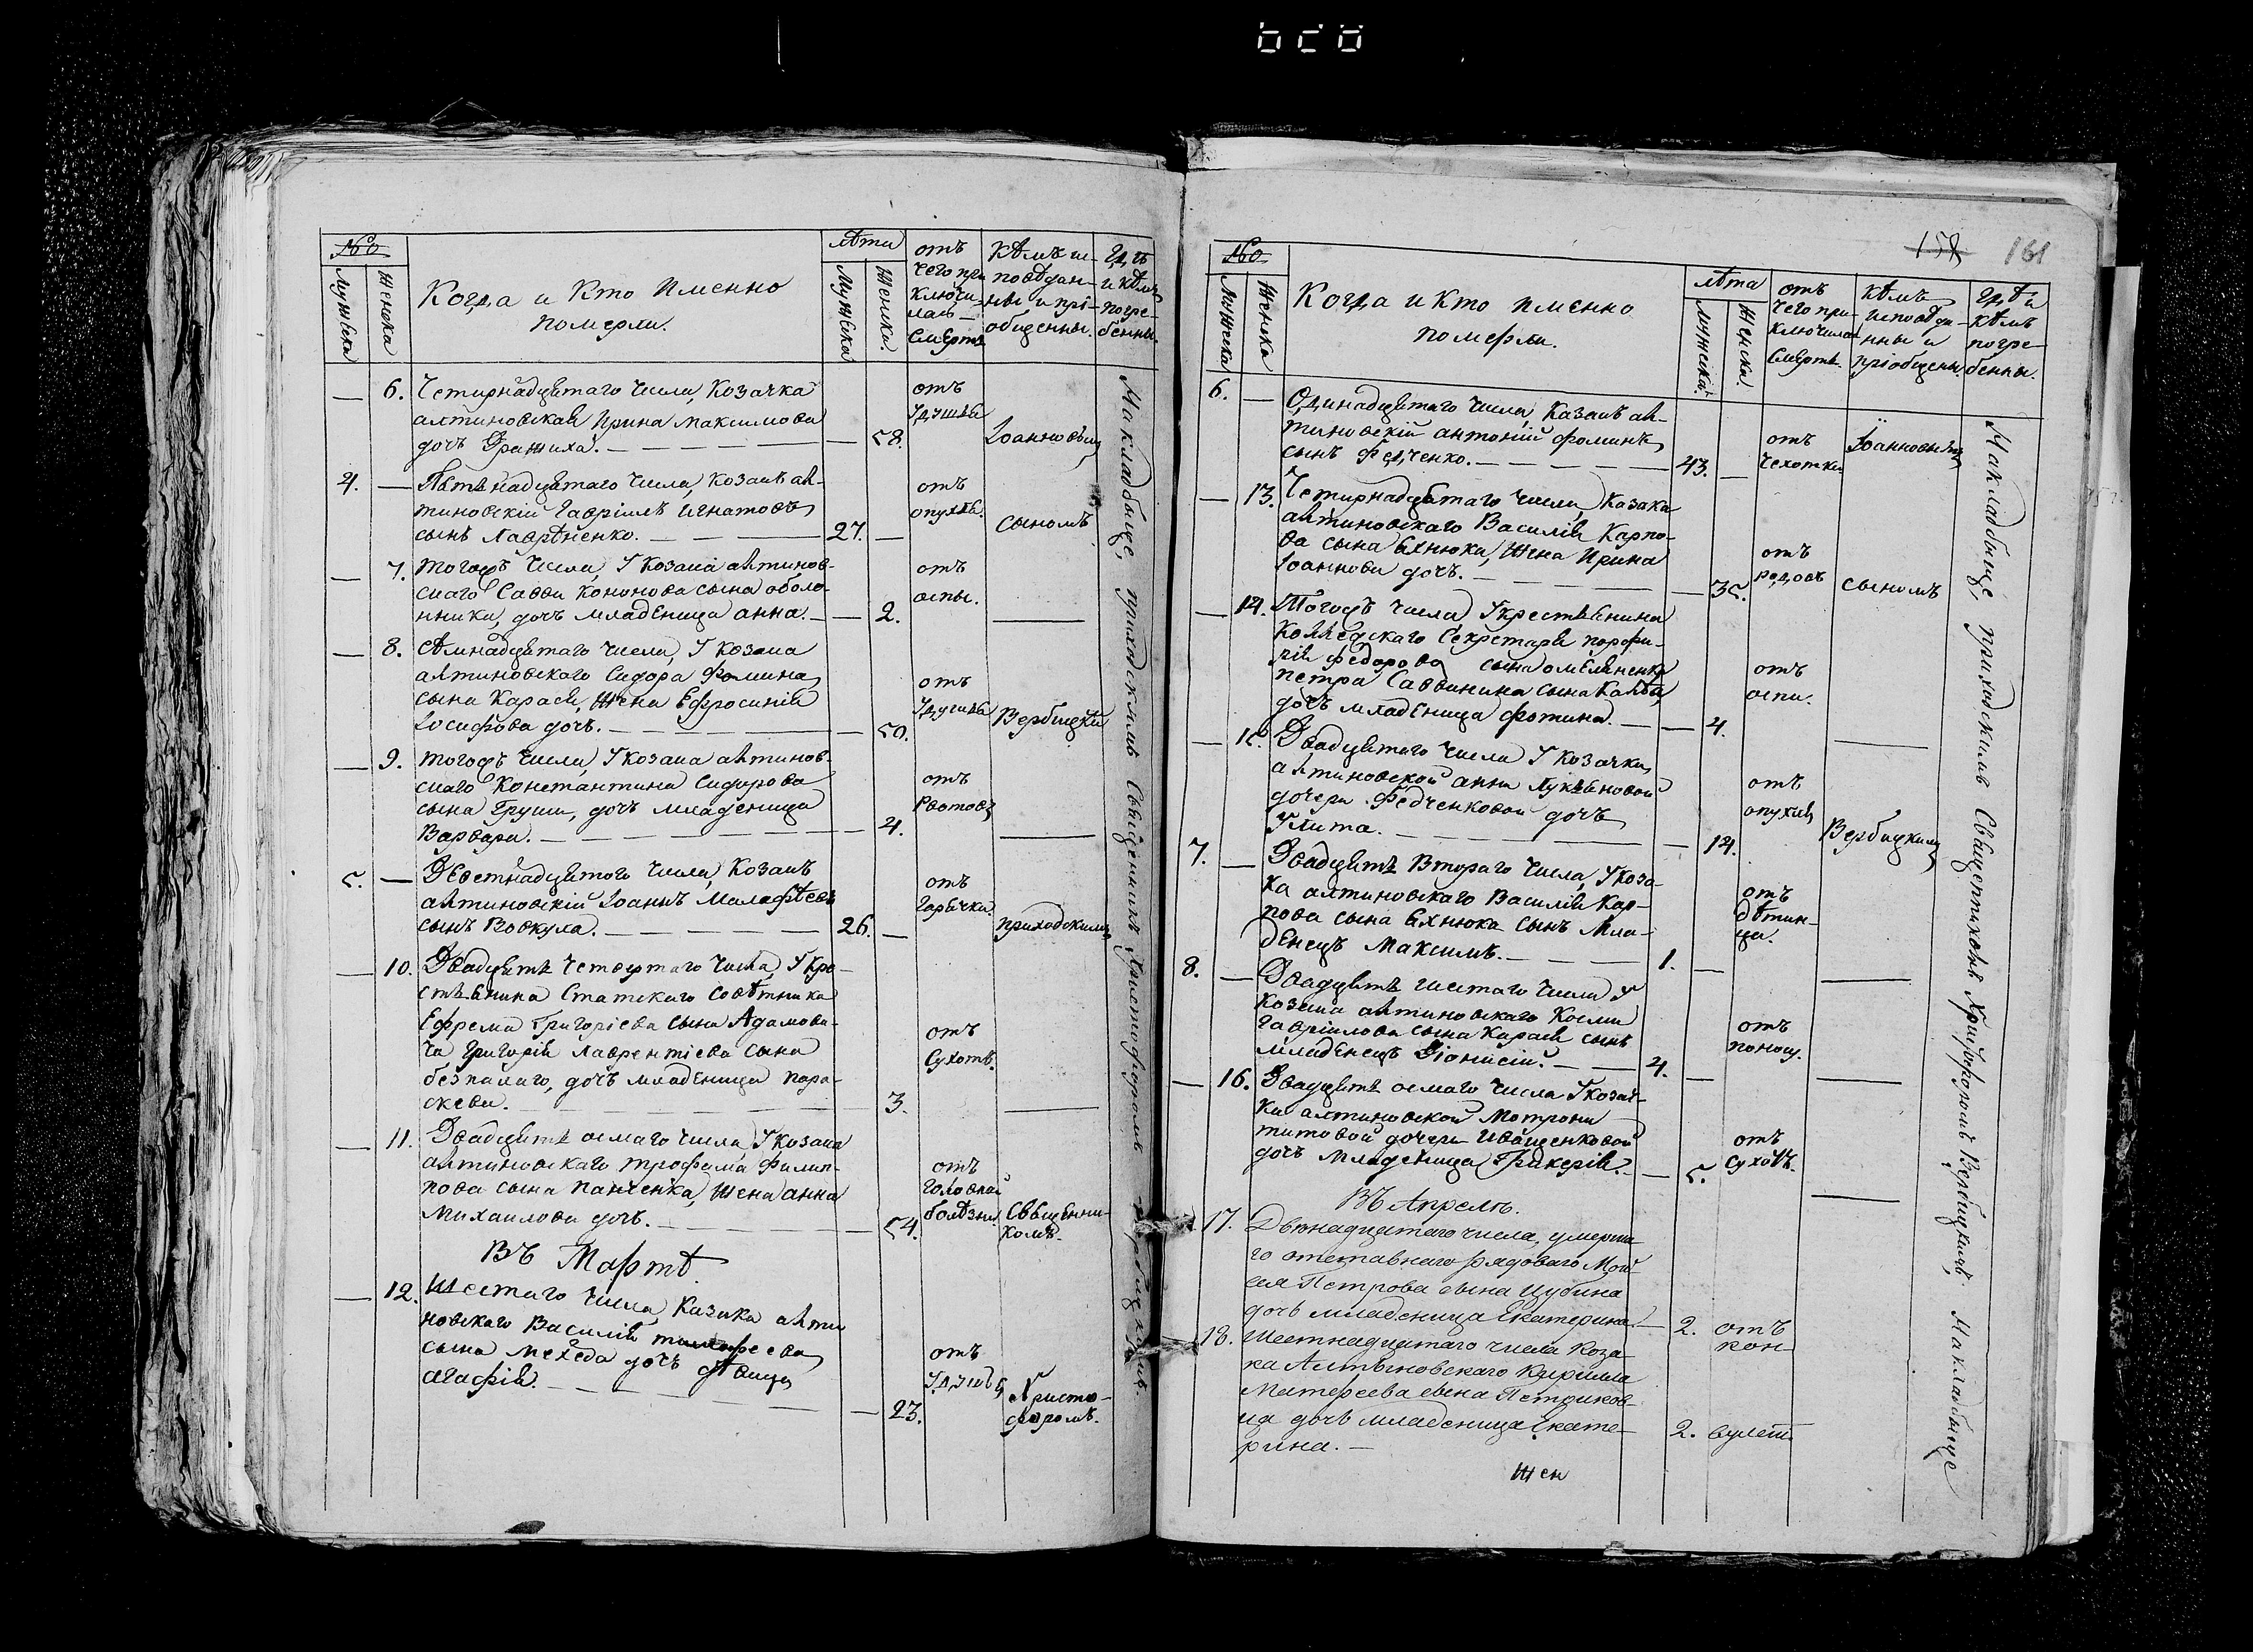 158 161
№
Мужеска
Женска
Когда и Кто Именно
померли.
лѣта
Мужеска
Женска.
отъ
чего при
ключи-
лась
Смерть
Кѣмъ ис-
повѣдан-
ны и прі-
общенны.
Гдѣ
и кѣмъ
погре-
бенны.
— 6. Четирнадцятаго Числа, Козачка
алтиновская Ирина Максимова
дочъ — — — 58.
отъ
удушья
Іоанновым
4. — Пятьнадцятаго Числа, Козакъ ал-
тиновскій Гавріилъ Игнатовъ
сынъ Лаврѣненко. — — — 27. —
отъ
опухлѣ.
сыномъ
— 7. Тогожъ Числа, У Козака алтинов-
скаго Савви Кононова сына оболо-
нника, дочъ младеница анна. — — 2.
отъ
оспы.
— 8. Сѣмнадцятаго Числа, У Козака
алтиновского Сидора Фомина
сына Карася, Жена Ефросинія
Іосифова дочъ. — — — 50.
отъ
удушья
Вербицкий
— 9. Тогожъ Числа, У Козака алтинов-
скаго Константина Сидорова
сына Груши, дочъ младеница
Варвара. — — — 4.
отъ
Рвотовъ
5. — Двостнадцятого Числа, Козакъ
алтиновскій Іоаннъ Малафѣевъ
сынъ Вовкула. — — — 26. —
отъ
Гарячки.
приходскимъ
— 10. Двадцять Четвертаго Числа, У Кре-
стьянина Статскаго Совѣтника
Ефрема Григоріева Сына Адамови-
ча Григорія Лаврентіева Сына
безпалаго, дочъ младеница пара-
скева. — — — 3.
отъ
Сухотъ.
— 11. Двадцять осмаго Числа, У Козака
алтиновскаго Трофима Филип-
пова сына Панченка, Жена анна
Михаилова дочъ. — — — 54.
отъ
головной
болѣзни
Священни-
комъ.
Въ Мартѣ.
— 12. Шестаго Числа, Казака алти
новскаго Василія
сына мехеда дочъ дѣвица
агафія. — — — 23.
отъ
удушья
Христо-
форомъ.
На кладбыще, приходскимъ Священникъ Христофоромъ Вербицкимъ
№
Мужеска
Женска
Когда и Кто именно
померли.
лѣта
мужеска.
Женска.
отъ
чего при-
ключилась
Смерть.
кѣмъ
исповѣда-
нны и
пріобщены.
гдѣ и
кѣмъ
погре-
бенны.
6. — Одинадцятаго Числа, Казакъ ал-
тиновскій антоній фоминъ
сынъ Федченко. — — — 43. —
отъ
Чехотки
Іоанновымъ
— 13. Четирнадцятаго Числа, Казака
алтиновскаго Василія Карпо-
ва сына Яхнюка, Жена Ирина
Іоаннова дочъ. — — — 35.
отъ
родовъ
сыномъ
— 14. Тогожъ Числа У крестьянина
Коллѣдскаго Секретаря порфи-
рія федорова сына омеляненка
петра Саввинина сына
дочъ младеница фотина. — — 4.
отъ
оспи.
— 15. Двадцятаго Числа У козачки
алтиновской анни Лукяновой
дочери Федченковой дочъ
Улита. — — — 14.
отъ
опухли
Вербицкимъ
7. — Двадцять Втораго Числа, У Коза-
ка алтиновскаго Василія Кар-
пова сына Яхнюка сынъ Мла-
денецъ Максимъ. — — — 1. —
отъ
дѣтин-
ца.
8. — Двадцять шестаго Числа У
козака алтиновскаго Косми
Гавріилова сына Карася сынъ
младенецъ Діонисій. — — 4. —
отъ
поносу.
— 16. Двадцять осмаго Числа У козач-
ки алтиновской Мотрони
титовой дочери Иващенковой
дочъ младеница Гликерія. — — 5.
отъ
сухотъ.
Въ Апрелъ.
17. Двѣнадцатаго числа, умерша-
го отставнаго рядоваго Мои-
сея Петрова сына Шубина
дочь младеница Екатерина. — 2.
отъ
кон
18. Шестнадцатаго числа Коза-
ка Алтыновскаго Кирилла
Матфеева сына
ца дочь младеница Екате-
рина. — 2.
вулсій.
Жен
На кладбыще, приходскимъ Священникомъ Христофоромъ Вербицкимъ, На кладбыще